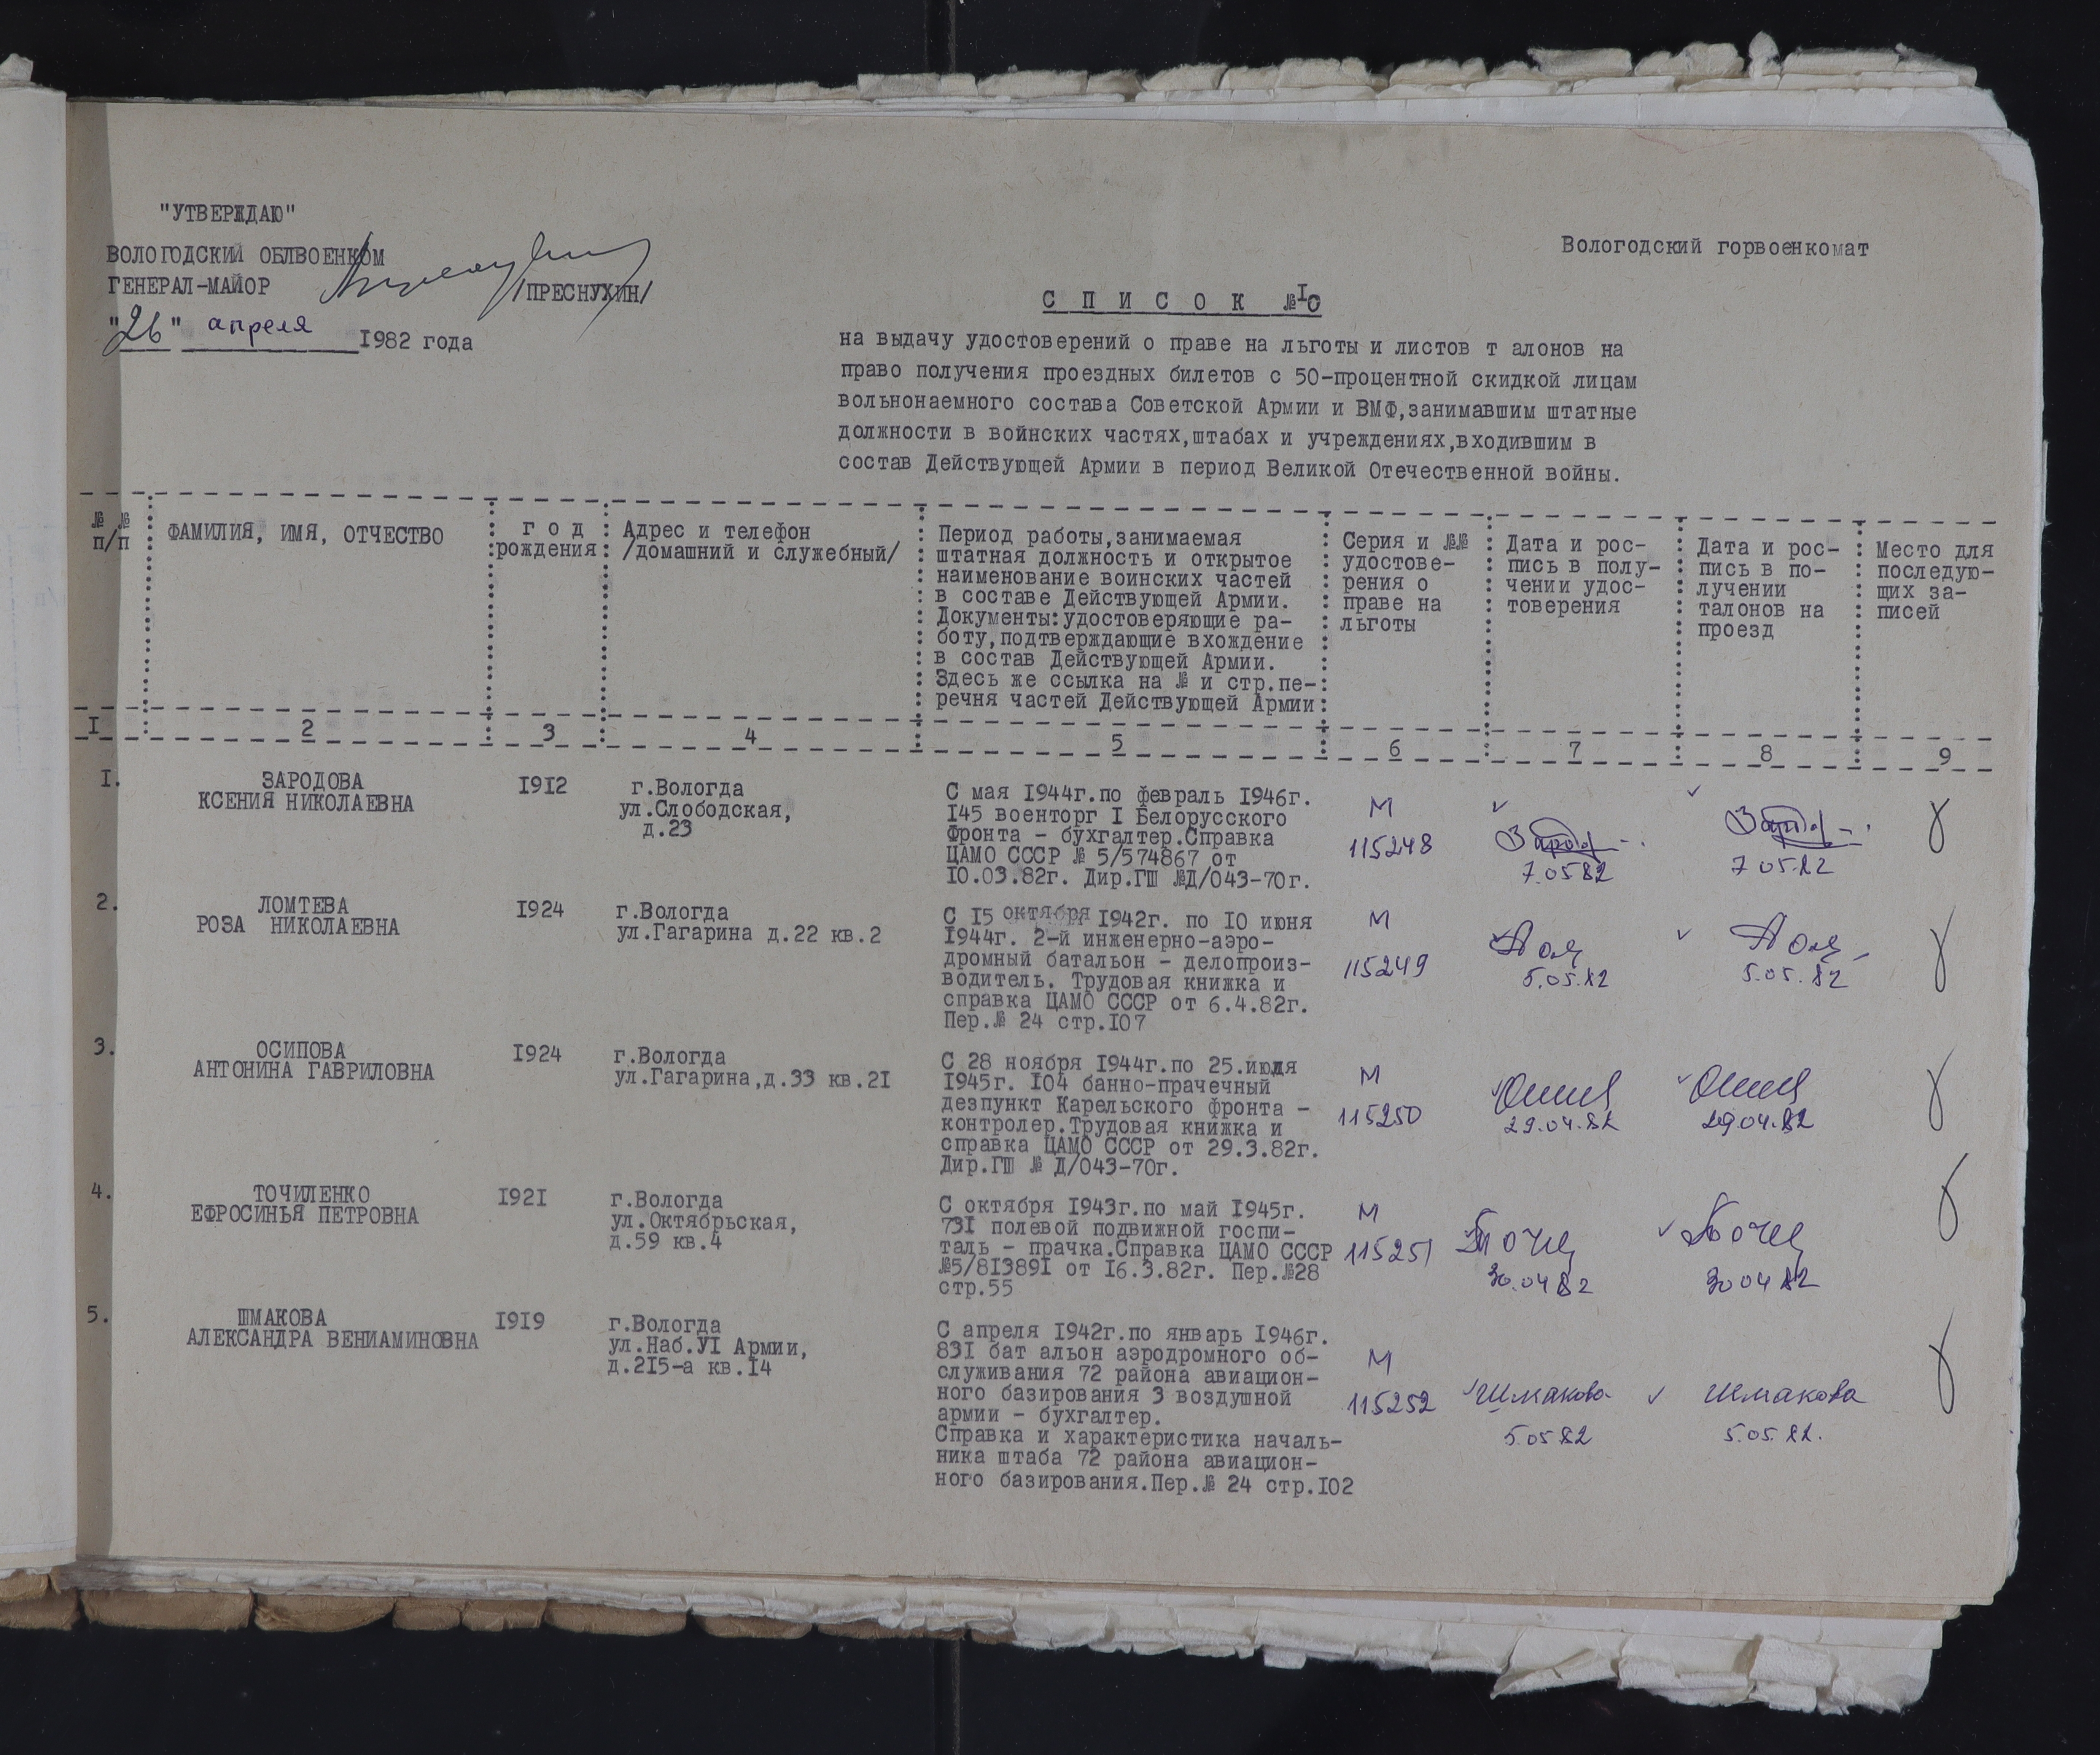 "УТВЕРЖДАЮ"
ВОЛОГОДСКИЙ ОБЛВОЕНКОМ
ГЕНЕРАЛ-МАЙОР /ПРЕСНУХИН/
"26" апреля 1982 года
Вологодский горвоенкомат
С П И С О К №10
на выдачу удостоверений о праве на льготы и листов т алонов на
право получения проездных билетов с 50-процентной скидкой лицам
вольнонаемного состава Советской Армии и ВМФ,занимавшим штатные
должности в войнских частях,штабах и учреждениях,входившим в
состав Действующей Армии в период Великой Отечественной войны.
№ №
п/п
ФАМИЛИЯ, ИМЯ, ОТЧЕСТВО
г о д
рождения
Адрес и телефон
/домашний и служебный/
Период работы,занимаемая
штатная должность и открытое
наименование воинских частей
в составе Действующей Армии.
Документы:удостоверяющие ра-
боту,подтверждающие вхождение
в состав Действующей Армии.
Здесь же ссылка на № и стр.пе-
речня частей Действующей Армии
Серия и №№
удостове-
рения о
праве на
льготы
Дата и рос-
пись в полу-
чении удос-
товерения
Дата и рос-
пись в по-
лучении
талонов на
проезд
Место для
последую-
щих за-
писей
I 2 3 4 5 6 7 8 9
I.
ЗАРОДОВА
КСЕНИЯ НИКОЛАЕВНА
I9I2
г.Вологда
ул.Слободская,
д.23
С мая I944г.по февраль I946г.
I45 военторг I Белорусского
Фронта - бухгалтер.Справка
ЦАМО СССР № 5/574867 от
I0.03.82г. Дир.ГШ №Д/043-70г.
М
115248
7.05 82
7 05.82
2.
ЛОМТЕВА
РОЗА НИКОЛАЕВНА
I924
г.Вологда
ул.Гагарина д.22 кв.2
С I5 октября I942г. по I0 июня
I944г. 2-й инженерно-аэро-
дромный батальон - делопроиз-
водитель. Трудовая книжка и
справка ЦАМО СССР от 6.4.82г.
Пер.№ 24 стр.I07
М
115249
5.05.82
5.05.82
3.
ОСИПОВА
АНТОНИНА ГАВРИЛОВНА
I924
г.Вологда
ул.Гагарина,д.33 кв.2I
С 28 ноября I944г.по 25.июля
I945г. I04 банно-прачечный
дезпункт Карельского фронта -
контролер.Трудовая книжка и
справка ЦАМО СССР от 29.3.82г.
Дир.ГШ № Д/043-70г.
М
115250
29.04.82
29.04.82
4.
ТОЧИЛЕНКО
ЕФРОСИНЬЯ ПЕТРОВНА
I92I
г.Вологда
ул.Октябрьская,
д.59 кв.4
С октября I943г.по май I945г.
73I полевой подвижной госпи-
таль - прачка.Справка ЦАМО СССР
№5/8I389I от I6.3.82г. Пер.№28
стр.55
М
115251
30.04 82
30 04 82
5.
ШМАКОВА
АЛЕКСАНДРА ВЕНИАМИНОВНА
I9I9
г.Вологда
ул.Наб.УI Армии,
д.2I5-а кв.I4
С апреля I942г.по январь I946г.
83I бат альон аэродромного об-
служивания 72 района авиацион-
ного базирования 3 воздушной
армии - бухгалтер.
Справка и характеристика началь-
ника штаба 72 района авиацион-
ного базирования.Пер.№ 24 стр.I02
М
115252
Шмакова
5.05 82
Шмакова
5.05.82.